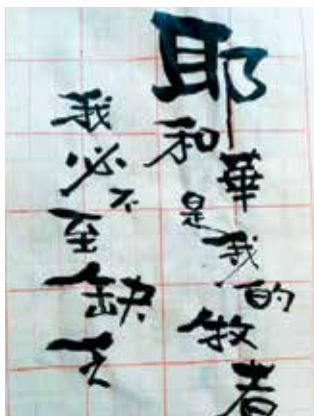 耶和華是我的牧者
我必不至缺乏